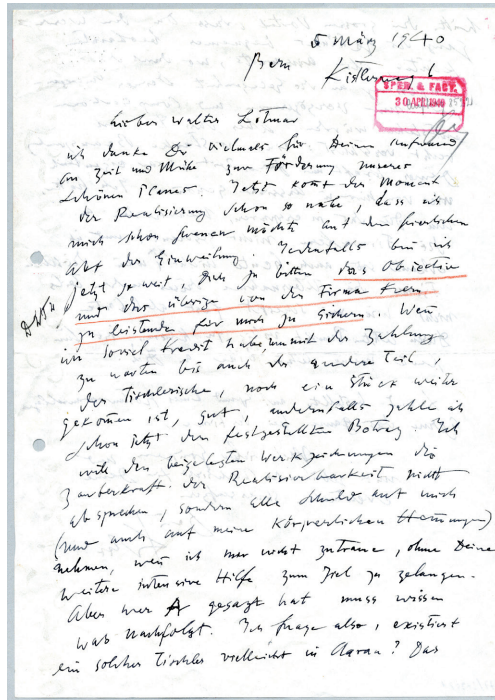 5 März 1940
Bern Kistlerweg 6
SPED. & FACT.
30 APR 1940
Lieber Walter Lotmar
ich danke Dir vielmals für Deinen Aufwand
an Zeit und Mühe zur Förderung unseres
schönen Planes. Jetzt kommt der Moment
der Realisierung schon so nahe, dass ich
mich schon freuen möchte auf den feierlichen
Akt der Einweihung. Jedenfalls bin ich
jetzt so weit, Dich zu bitten das Objectiv
und das übrige von der Firma Kern
zu leistende für mich zu sichern. Wenn
ich soviel Kredit habe, um mit der Zahlung
zu warten bis auch der andere Teil,
der Tischlerische, noch ein Stück weiter
gekommen ist, gut, andernfalls zahle ich
schon jetzt den festgestellten Betrag. Ich
will den beigelegten Werkzeichnungen die
Zauberkraft der Realisierbarkeit nicht
absprechen, sondern alle Schuld auf mich
(und auch auf meine körperlichen Hemmungen)
nehmen, wenn ich mir nicht zutraue, ohne Deine
weitere intensive Hilfe zum Ziel zu gelangen.
Aber wer A gesagt hat muss wissen
was nachfolgt. Ich frage also, existiert
ein solcher Tischler vielleicht in Aarau? Das